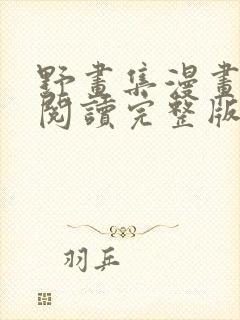 野畫集漫畫
閱讀完整版
羽兵